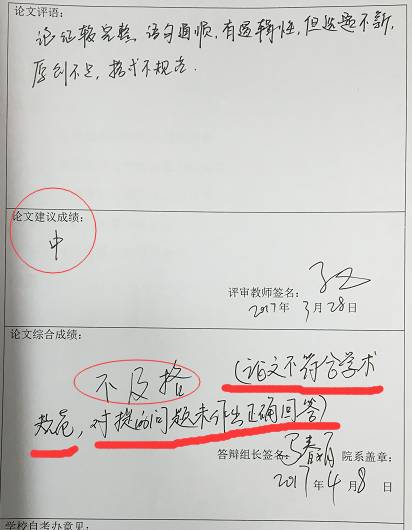 论文评语：
论证较完整、语句通顺，有逻辑性，但选题不新，
原创不足，格式不规范．
论文建议成绩：
中
评审教师签名：
2017年 3月28日
论文综合成绩：
不及格 （论文不符合学术
规范，对提的问题未作出正确回答）
答辩组长签名： 院系盖章：
2017年 4月 8日
学校自考办意见：